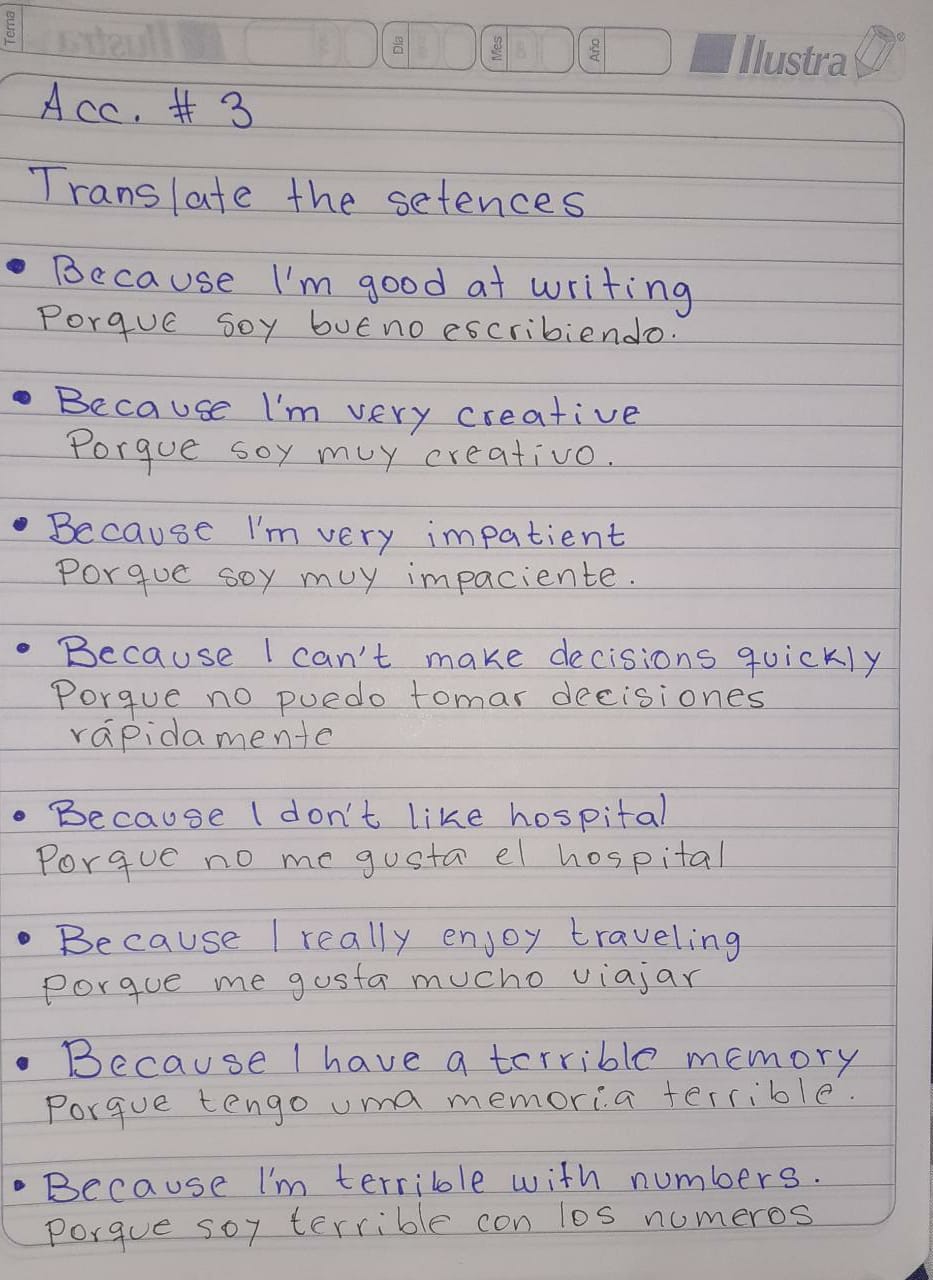 Tema
Dia
Mes
Año
Ilustra
Acc. # 3
Translate the setences
• Because I'm good at writing
Porque soy bueno escribiendo.
• Because I'm very creative
Porque soy muy creativo.
• Because I'm very impatient
Porque soy muy impaciente.
• Because I can't make decisions quickly
Porque no puedo tomar decisiones
rápidamente
• Because I don't like hospital
Porque no me gusta el hospital
• Because I really enjoy traveling
Porque me gusta mucho viajar
• Because I have a terrible memory
Porque tengo uma memoria terrible.
• Because I'm terrible with numbers.
Porque soy terrible con los numeros